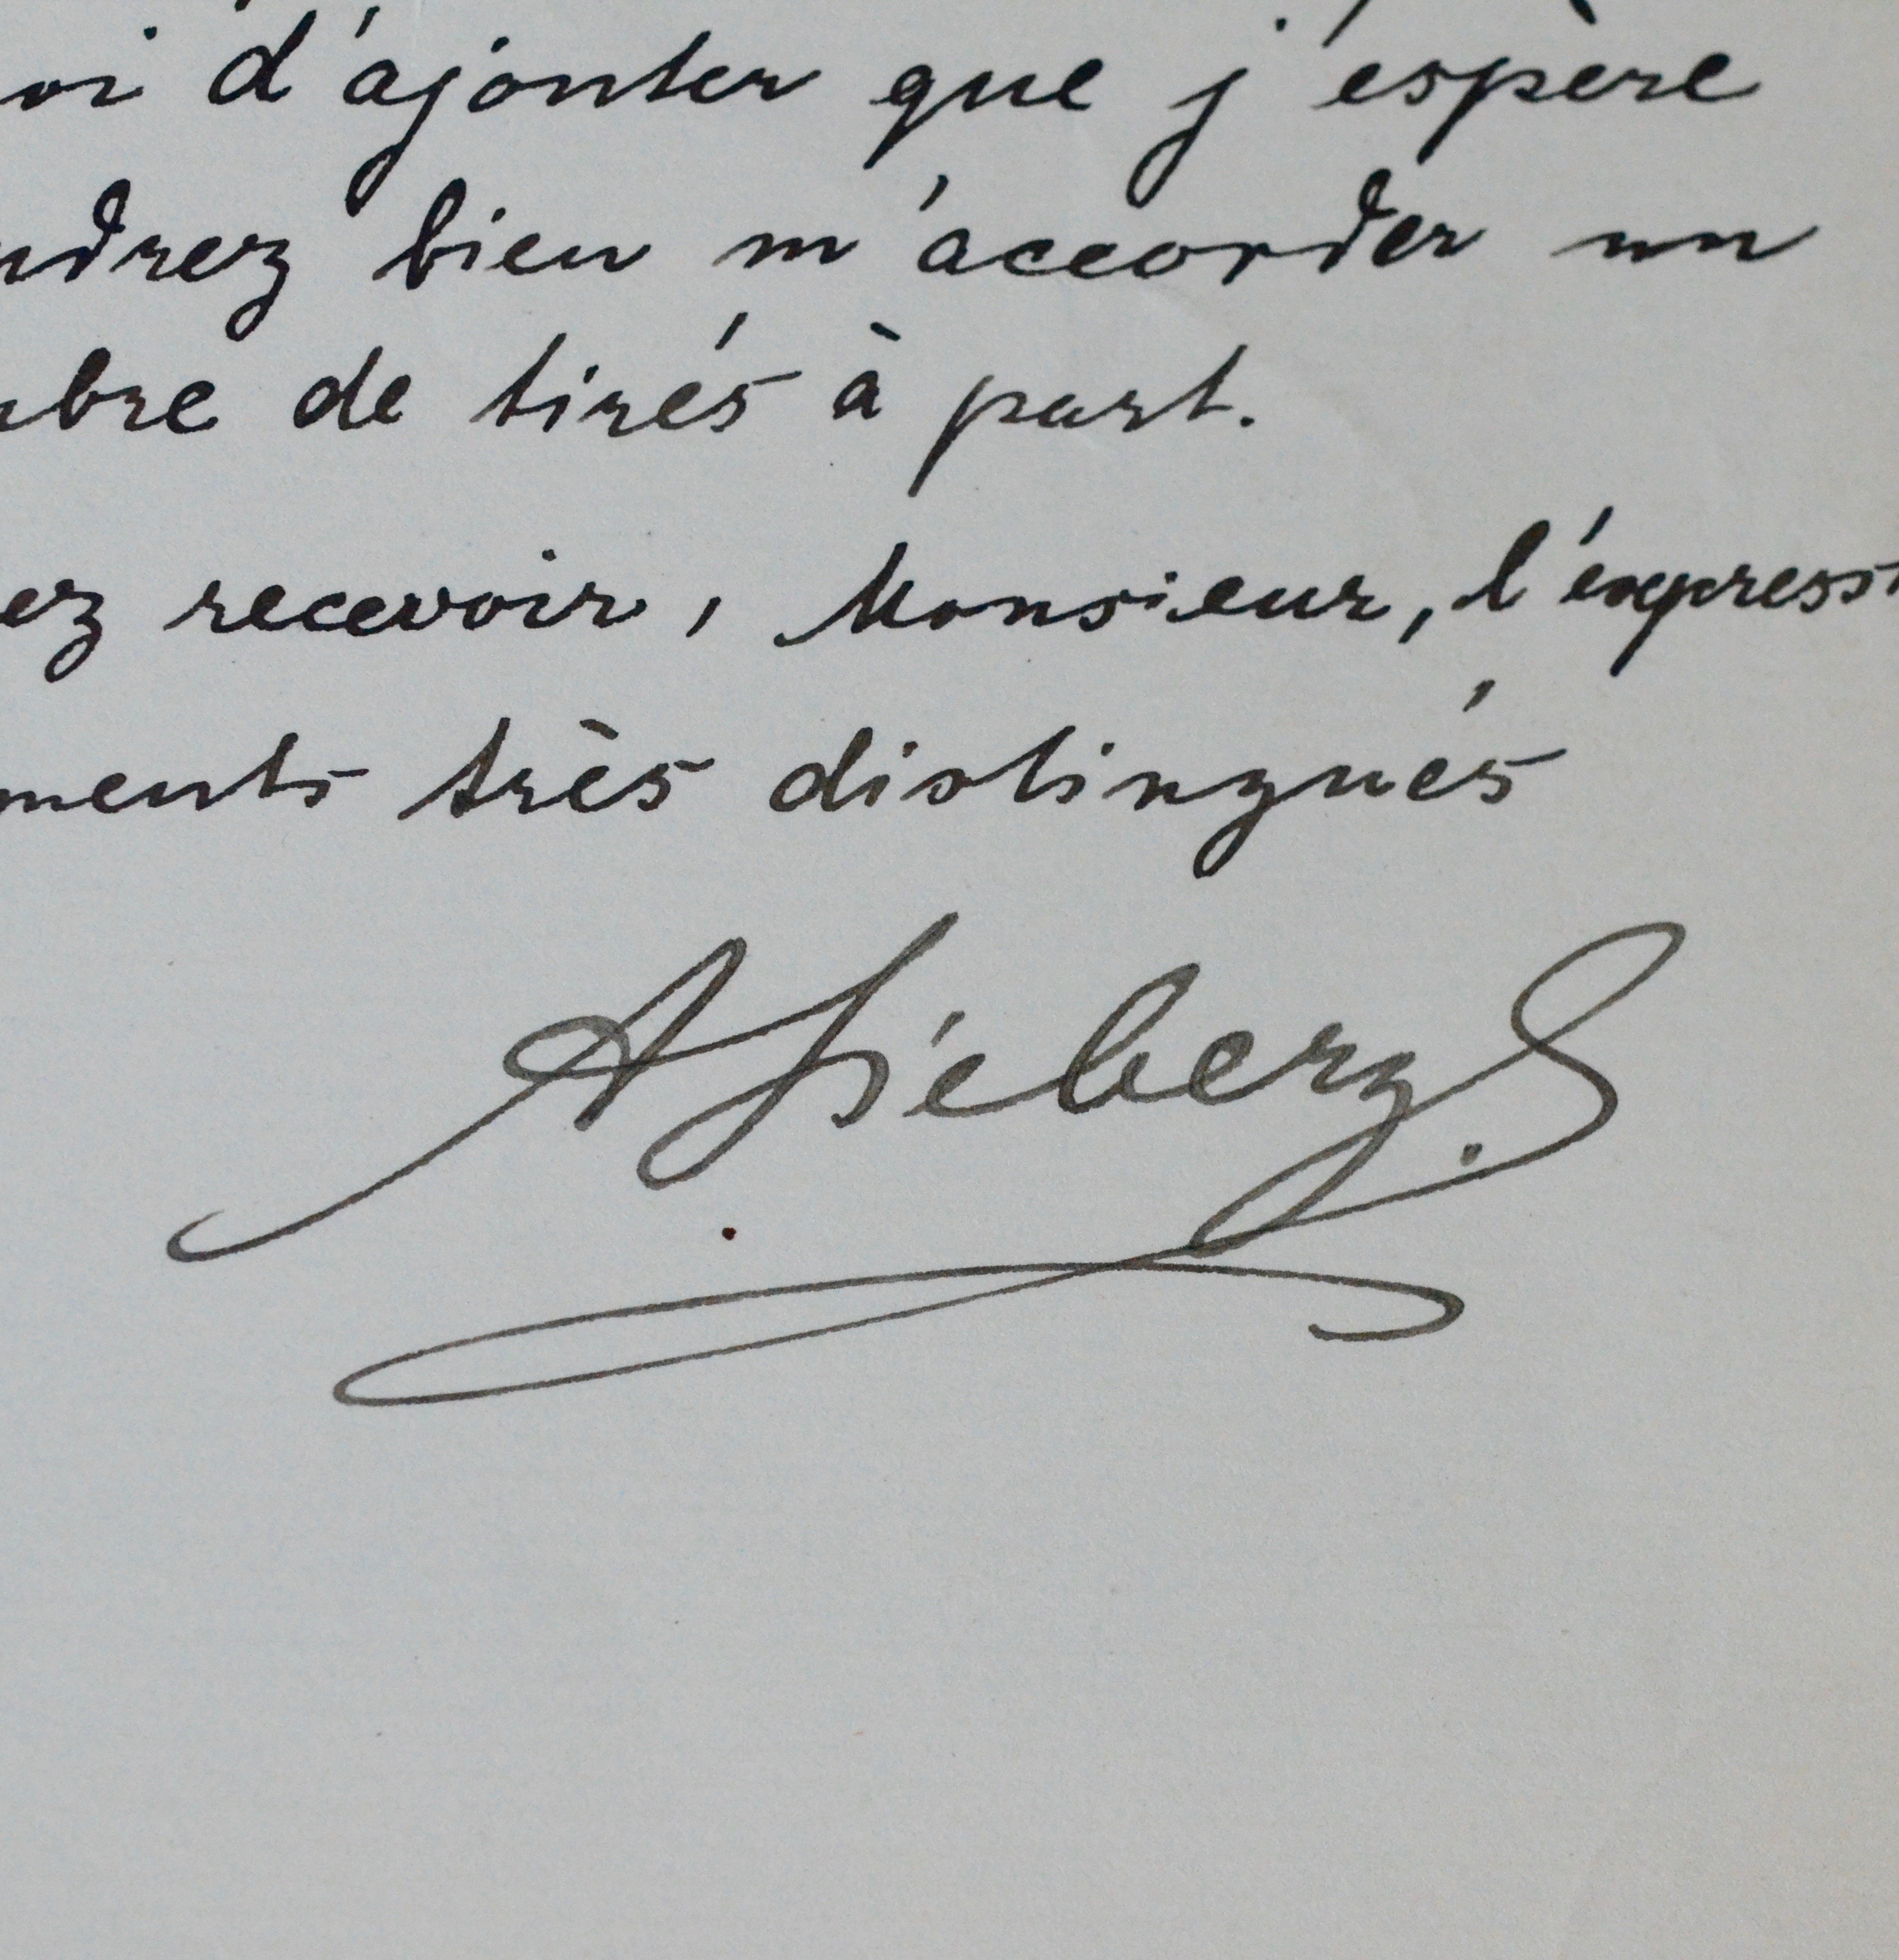 oi d'ajouter que j'espère
ndrez bien m'accorder un
mbre de tirés à part.
ez recevoir, Monsieur, l'express
ments très distingués
A Sieberg